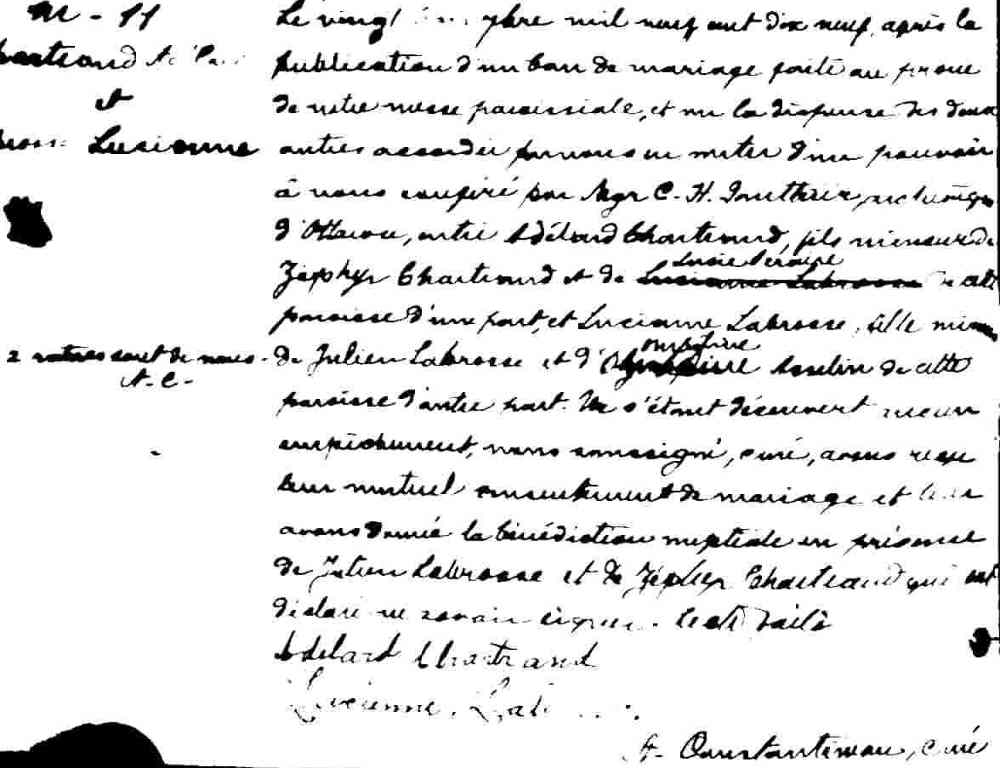 M - 11
et
Lucienne
2 ratures sont de nous -
A. C. -
Le vingt mil neuf cent dix neuf, après la
publication d'un ban de mariage faite au prone
de notre messe paroissiale, et vu la dispense des deux
autres accordée par nous en vertu d'un pouvoir
à nous conféré par Mgr C. H. Gauthier, archevêque
d'Ottawa, entre Adélard Chartrand, fils mineur de
Zéphyr Chartrand et de Lucie de cette
paroisse d'une part, et Lucienne Labrosse, fille mineure
de Julien Labrosse et d' Onésifire Asselin de cette
paroisse d'autre part. Ne s'étant découvert aucun
empêchement, nous soussigné, curé, avons reçu
leur mutuel consentement de mariage et leur
avons donné la bénédiction nuptiale en présence
de Julien Labrosse et de Zéphyr Chartrand qui ont
déclaré ne savoir signer.
Adelard Chartrand
Lucienne
A. Constantineau, curé